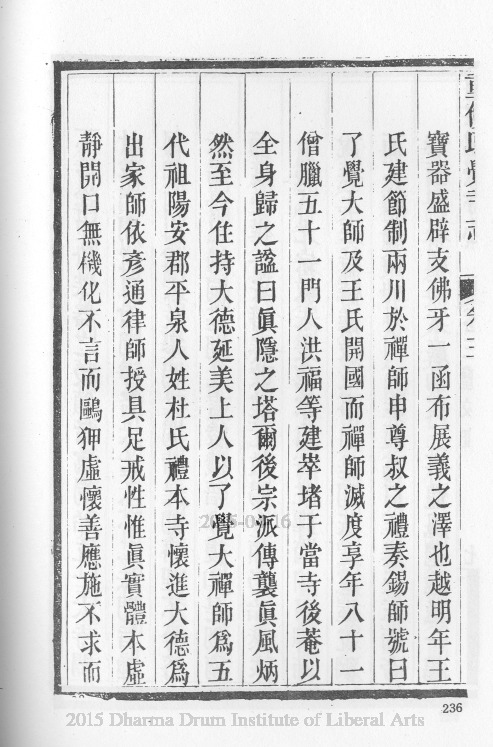 寶器盛辟支佛牙一函布展義之澤也越明年王
氏建節制兩川於禪師申尊叔之禮奏錫師號曰
了覺大師及王氏開國而禪師滅度享年八十一
僧臘五十一門人洪福等建崒堵于當寺後菴以
全身歸之謚曰眞隱之塔爾後宗派傳襲眞風炳
然至今住持大德延美上人以了覺大禪師爲五
代祖陽安郡平泉人姓杜氏禮本寺懷進大德爲
出家師依彥通律師授具足戒性惟眞實體本虛
靜開口無機化不言而鷗狎虛懷善應施不求而
236
2015 Dharma Drum Institute of Liberal Arts